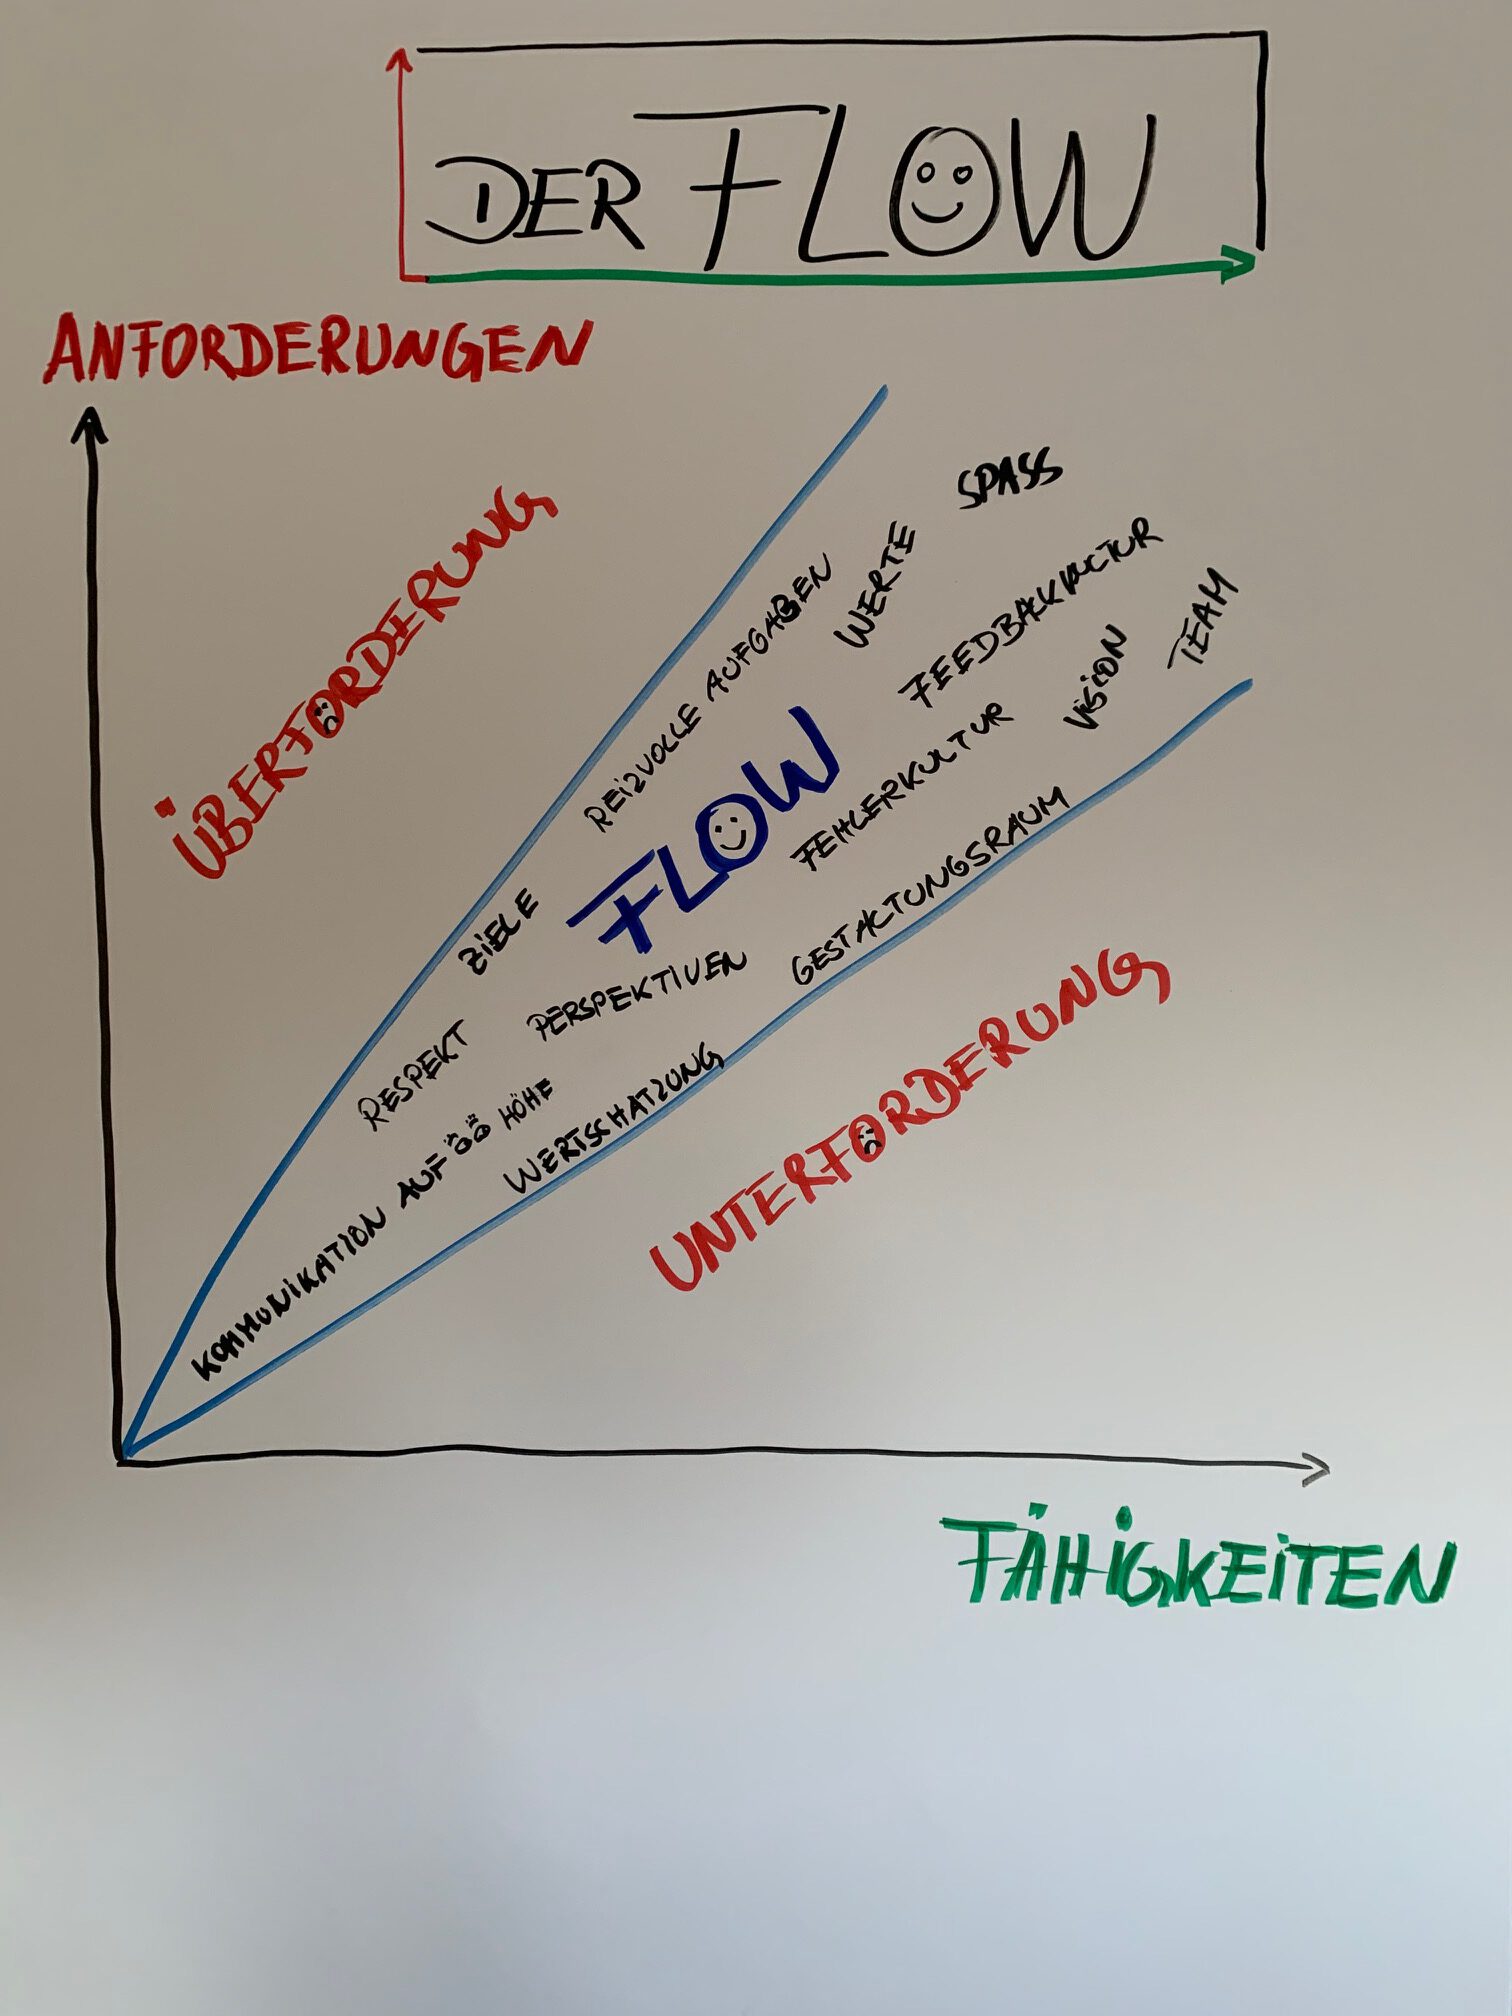 DER FLOW
ANFORDERUNGEN
ÜBERFORDERUNG
SPASS
WERTE
REIZVOLLE AUFGABEN
FEEDBACKKULTUR
TEAM
VISION
FLOW
FEHLERKULTUR
ZIELE
GESTALTUNGSRAUM
PERSPEKTIVEN
RESPEKT
KOMMUNIKATION AUF HÖHE
WERTSCHÄTZUNG
UNTERFORDERUNG
FÄHIGKEITEN